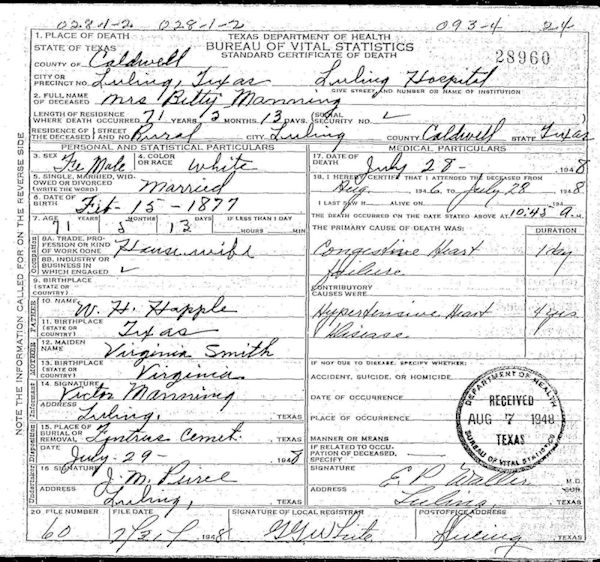 028-1-2 028-1-2 093-4 24
1. PLACE OF DEATH TEXAS DEPARTMENT OF HEALTH
STATE OF TEXAS BUREAU OF VITAL STATISTICS
STANDARD CERTIFICATE OF DEATH 28960
COUNTY OF Caldwell
CITY OR PRECINCT NO. Luling, Texas Luling Hospital
GIVE STREET AND NUMBER OR NAME OF INSTITUTION
2. FULL NAME OF DECEASED Mrs Bitty Manning
LENGTH OF RESIDENCE WHERE DEATH OCCURRED 71 YEARS MONTHS 13 DAYS SOCIAL SECURITY NO.
RESIDENCE OF THE DECEASED STREET AND NO. Rural CITY Luling COUNTY Caldwell STATE Texas
PERSONAL AND STATISTICAL PARTICULARS MEDICAL PARTICULARS
3. SEX Fe Male 4. COLOR OR RACE White
5. SINGLE, MARRIED, WIDOWED OR DIVORCED (WRITE THE WORD) Married
6. DATE OF BIRTH Feb-15-1877
7. AGE 71 YEARS 5 MONTHS 13 DAYS IF LESS THAN 1 DAY
HOURS MIN
Occupation
8A. TRADE, PROFESSION OR KIND OF WORK DONE House wife
8B. INDUSTRY OR BUSINESS IN WHICH ENGAGED
9. BIRTHPLACE (STATE OR COUNTRY)
FATHER
10. NAME W. H. Happle
11. BIRTHPLACE (STATE OR COUNTRY) Texas
MOTHER
12. MAIDEN NAME Virginia Smith
13. BIRTHPLACE (STATE OR COUNTRY) Virginia
Informant
14. SIGNATURE Victor Manning
ADDRESS Luling, TEXAS
Undertaker Disposition
15. PLACE OF BURIAL OR REMOVAL Cemet. TEXAS
DATE July-29- 1948
16. SIGNATURE J. M.
ADDRESS Luling, TEXAS
17. DATE OF DEATH July 28- 1948
18. I HEREBY CERTIFY THAT I ATTENDED THE DECEASED FROM
Aug. 1946 TO July 28 1948
I LAST SAW H ALIVE ON 194
THE DEATH OCCURRED ON THE DATE STATED ABOVE AT 10:45 M.
THE PRIMARY CAUSE OF DEATH WAS: DURATION
Congestive Heart 1 day
Failure
CONTRIBUTORY CAUSES WERE
Hypertensive Heart 4 yrs
Disease
IF NOT DUE TO DISEASE, SPECIFY WHETHER:
ACCIDENT, SUICIDE, OR HOMICIDE
DATE OF OCCURRENCE
PLACE OF OCCURRENCE
MANNER OR MEANS
IF RELATED TO OCCUPATION OF DECEASED, SPECIFY
SIGNATURE E. P. Waller M.D.
ADDRESS Luling, TEXAS
DEPARTMENT OF HEALTH
RECEIVED
AUG 7 1948
TEXAS
BUREAU OF VITAL STATISTICS
20. FILE NUMBER SIGNATURE OF LOCAL REGISTRAR POSTOFFICE ADDRESS
60 1948 White Luling
NOTE THE INFORMATION CALLED FOR ON THE REVERSE SIDE.